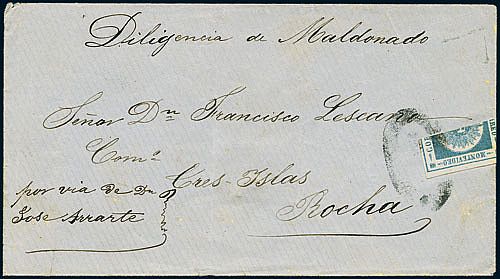 Diligencia de Maldonado
Señor Dn Francisco Lescano
Comª
Tres-Islas
por via de Dn
Jose Arrarte
Rocha
MONTEVIDEO